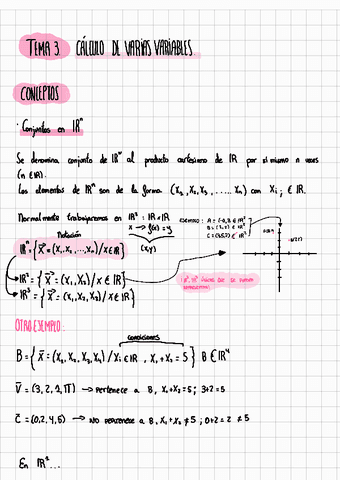 TEMA 3. CÁLCULO DE VARIAS VARIABLES.
CONCEPTOS
· Conjuntos en ℝⁿ
Se denomina conjunto de ℝⁿ al producto cartesiano de ℝ por si mismo n veces
(n ∈ ℝ).
Los elementos de ℝⁿ son de la forma (x₁, x₂, x₃, ..... xₙ) con xᵢ ∈ ℝ.
Normalmente trabajaremos en ℝ² : ℝ×ℝ
x → f(x) = y
(x,y)
EJEMPLO:
Notación
ℝⁿ = { x⃗ = (x₁, x₂, ..., xₙ) / x ∈ ℝ }
ℝ² = { x⃗ = (x₁, x₂) / x ∈ ℝ }
ℝ³ = { x⃗ = (x₁, x₂, x₃) / x ∈ ℝ }
OTRO EJEMPLO:
condiciones
B = { x⃗ = (x₁, x₂, x₃, x₄) / xᵢ ∈ ℝ , x₁ + x₂ = 5 } B ∈ ℝ⁴
V⃗ = (3, 2, 1, π) → Pertenece a B, x₁ + x₂ = 5 ; 3+2 = 5
C⃗ = (0, 2, 4, 5) → No pertenece a B, x₁ + x₂ ≠ 5 ; 0+2 = 2 ≠ 5
En ℝ²...